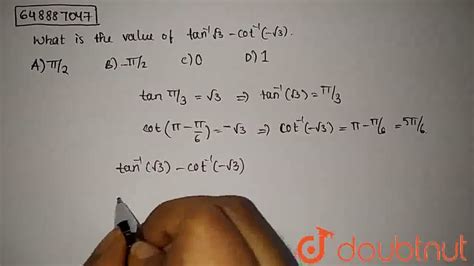 648887047
What is the value of tan⁻¹√3 - cot⁻¹(-√3).
A) π/2 B) -π/2 C) 0 D) 1
tan π/3 = √3 ⇒ tan⁻¹(√3) = π/3
cot(π - π/6) = -√3 ⇒ cot⁻¹(-√3) = π - π/6 = 5π/6
tan⁻¹(√3) - cot⁻¹(-√3)
doubtnut